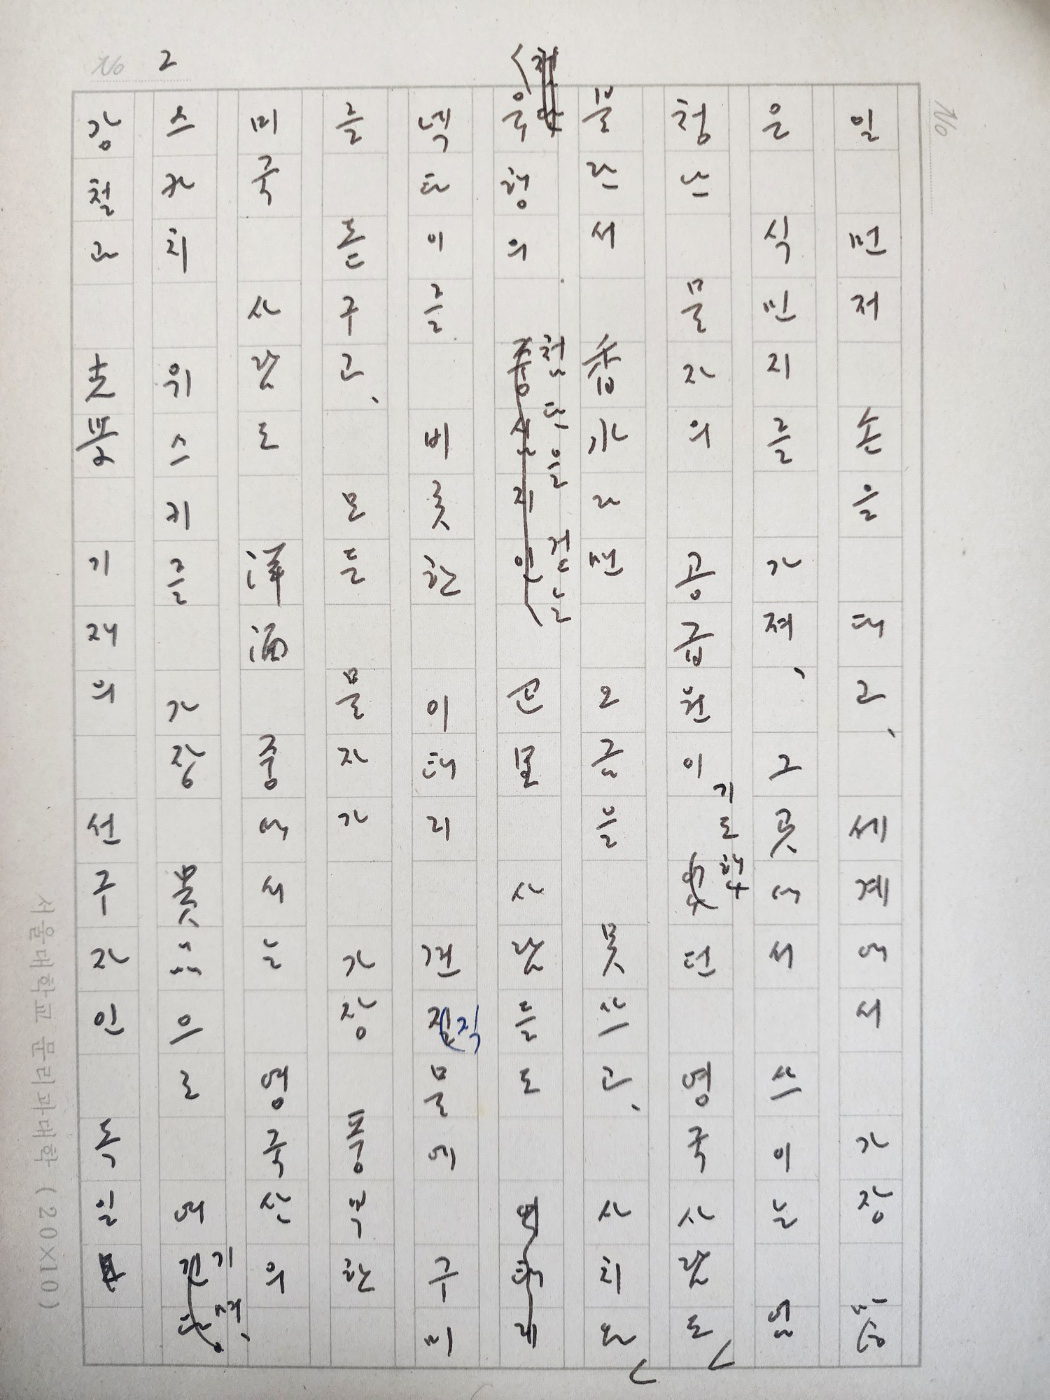 No 2
No
일 먼저 손을 대고, 세계에서 가장 많
은 식민지를 가져, 그곳에서 쓰이는 엄
청난 물자의 공급원이기도 했던 영국 사람도
불란서 香水라면 오금을 못 쓰고, 사치와
유행의 첨단을 걷는 런던 사람들도
넥타이를 비롯한 이태리 견직물에 구미
를 돋구고, 모든 물자가 가장 풍부한
미국 사람도 洋酒 중에서는 영국산의
스카치 위스키를 가장 으로 여기며,
강철과 光學 기재의 선구자인 독일
서울대학교 문리과대학 (20×10)